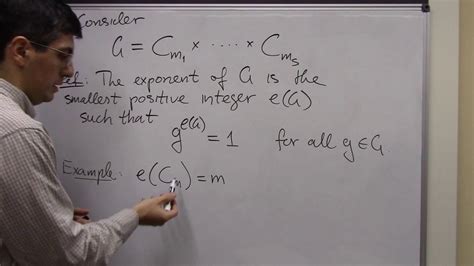 Consider
G = Cm₁ × ····· × Cmₛ
Def: The exponent of G is the
smallest positive integer e(G)
such that
g^e(G) = 1 for all g ∈ G
Example: e(Cm) = m